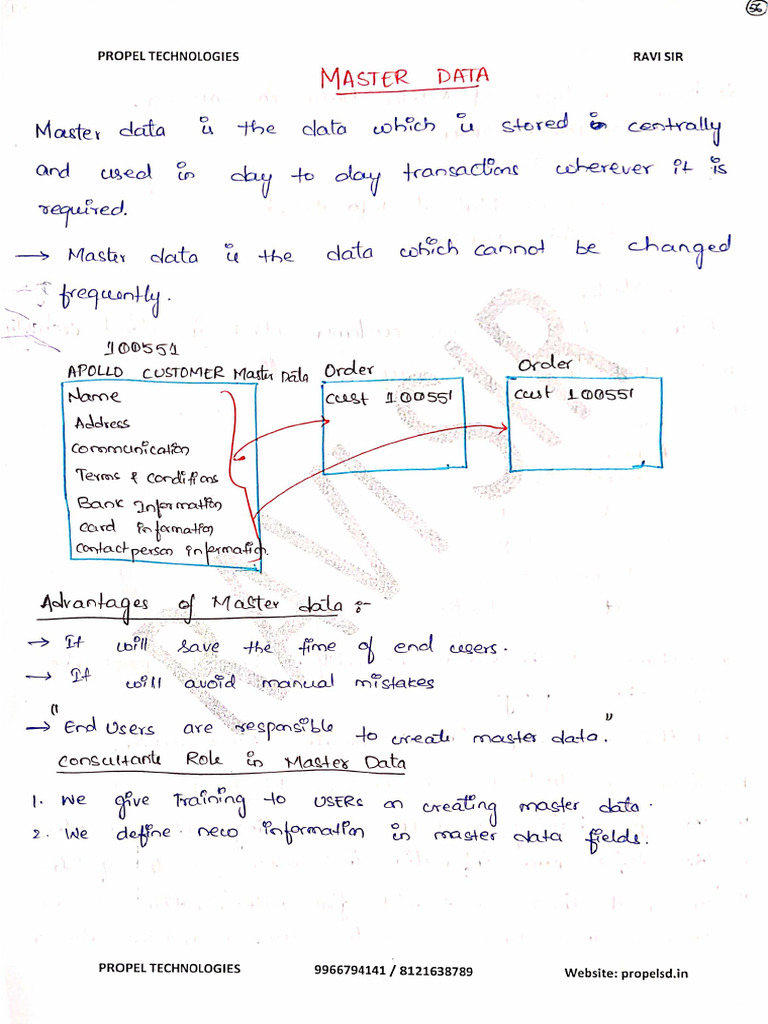 56
PROPEL TECHNOLOGIES RAVI SIR
MASTER DATA
Master data is the data which is stored centrally
and used in day to day transactions wherever it is
required.
→ Master data is the data which cannot be changed
frequently.
100551
APOLLO CUSTOMER Master Data Order Order
Name
Address
Communication
Terms & Conditions
Bank Information
Card information
Contact person information.
Cust 100551
Cust 100551
RAVI SIR
Advantages of Master data :-
→ It will save the time of end users.
→ It will avoid manual mistakes
→ "End Users are responsible to create master data."
Consultants Role in Master Data
1. We give Training to USERs on creating master data.
2. We define neco information in master data fields.
PROPEL TECHNOLOGIES 9966794141 / 8121638789 Website: propelsd.in